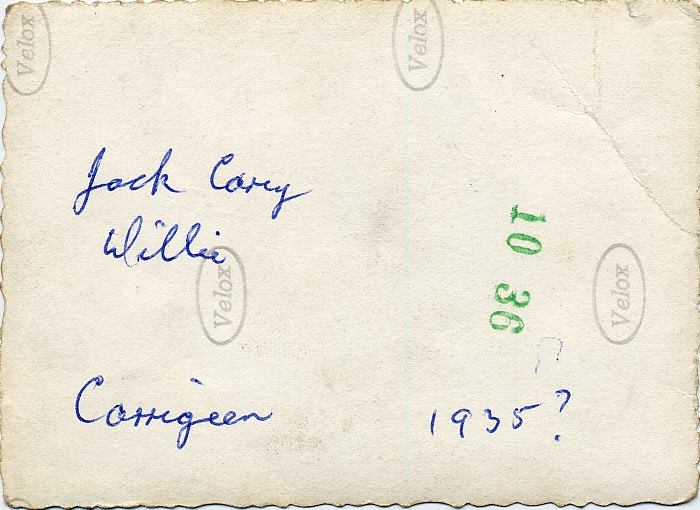 Velox Velox
Jack Carey
Willie
Velox
10
36
Velox
Corrigeen 1935?